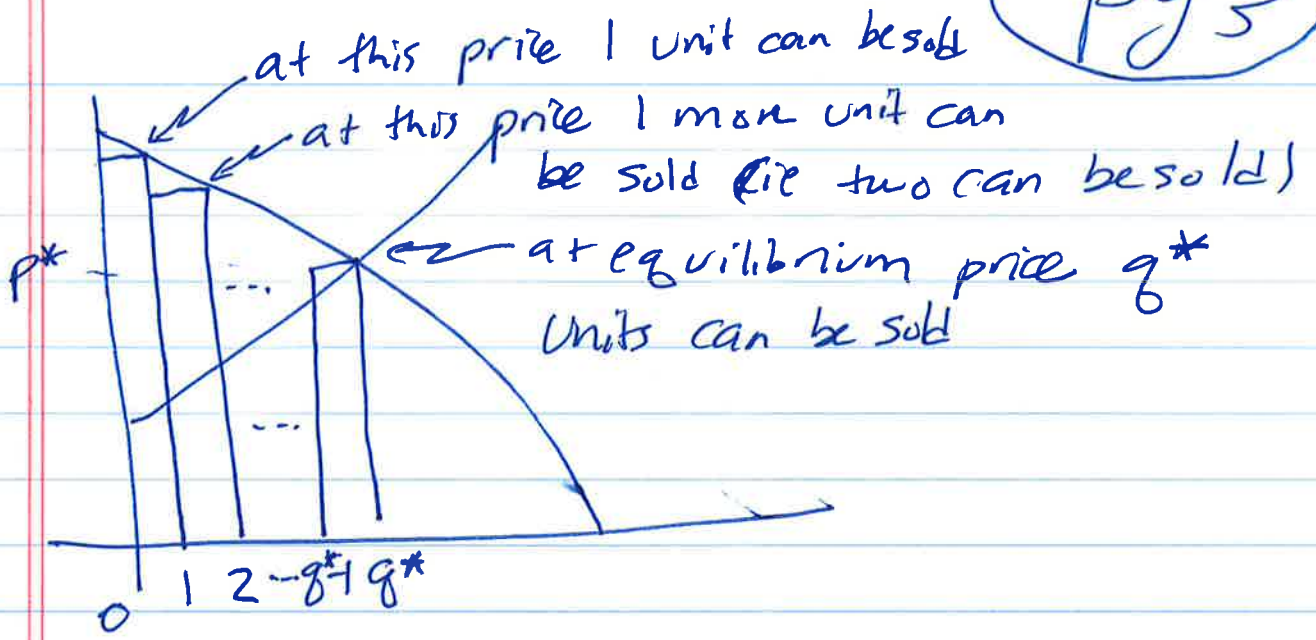 pg 5
at this price 1 unit can be sold
at this price 1 more unit can
be sold (ie two can be sold)
at equilibrium price q*
units can be sold
p*
...
...
0 1 2 --- q*-1 q*